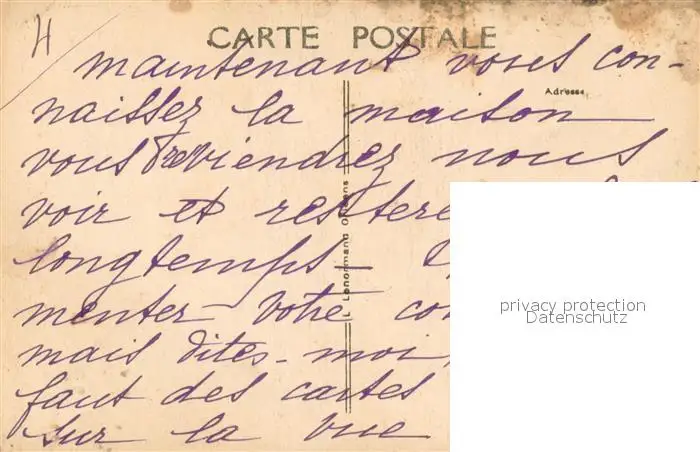 4
CARTE POSTALE
maintenant vous con-
Adresse
naissez la maison
vous reviendrez nous
voir et restere
longtemps-
L. Lenormand Orléans
menter votre co
privacy protection
Datenschutz
mais dites-moi,
faut des cartes
sur la vue